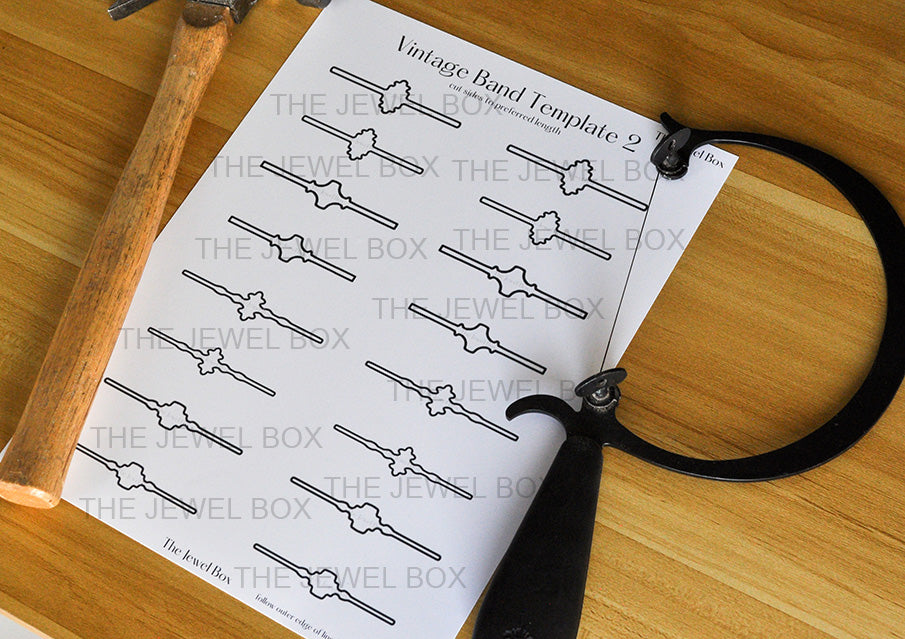 Vintage Band Template 2
cut sides to preferred length
The Jewel Box
THE JEWEL BOX
THE JEWEL BOX
THE JEWEL BOX
THE JEWEL BOX
THE JEWEL BOX
THE JEWEL BOX
THE JEWEL BOX
THE JEWEL BOX
THE JEWEL BOX
THE JEWEL BOX
THE JEWEL BOX
THE JEWEL BOX
THE JEWEL BOX
The Jewel Box
follow outer edge of